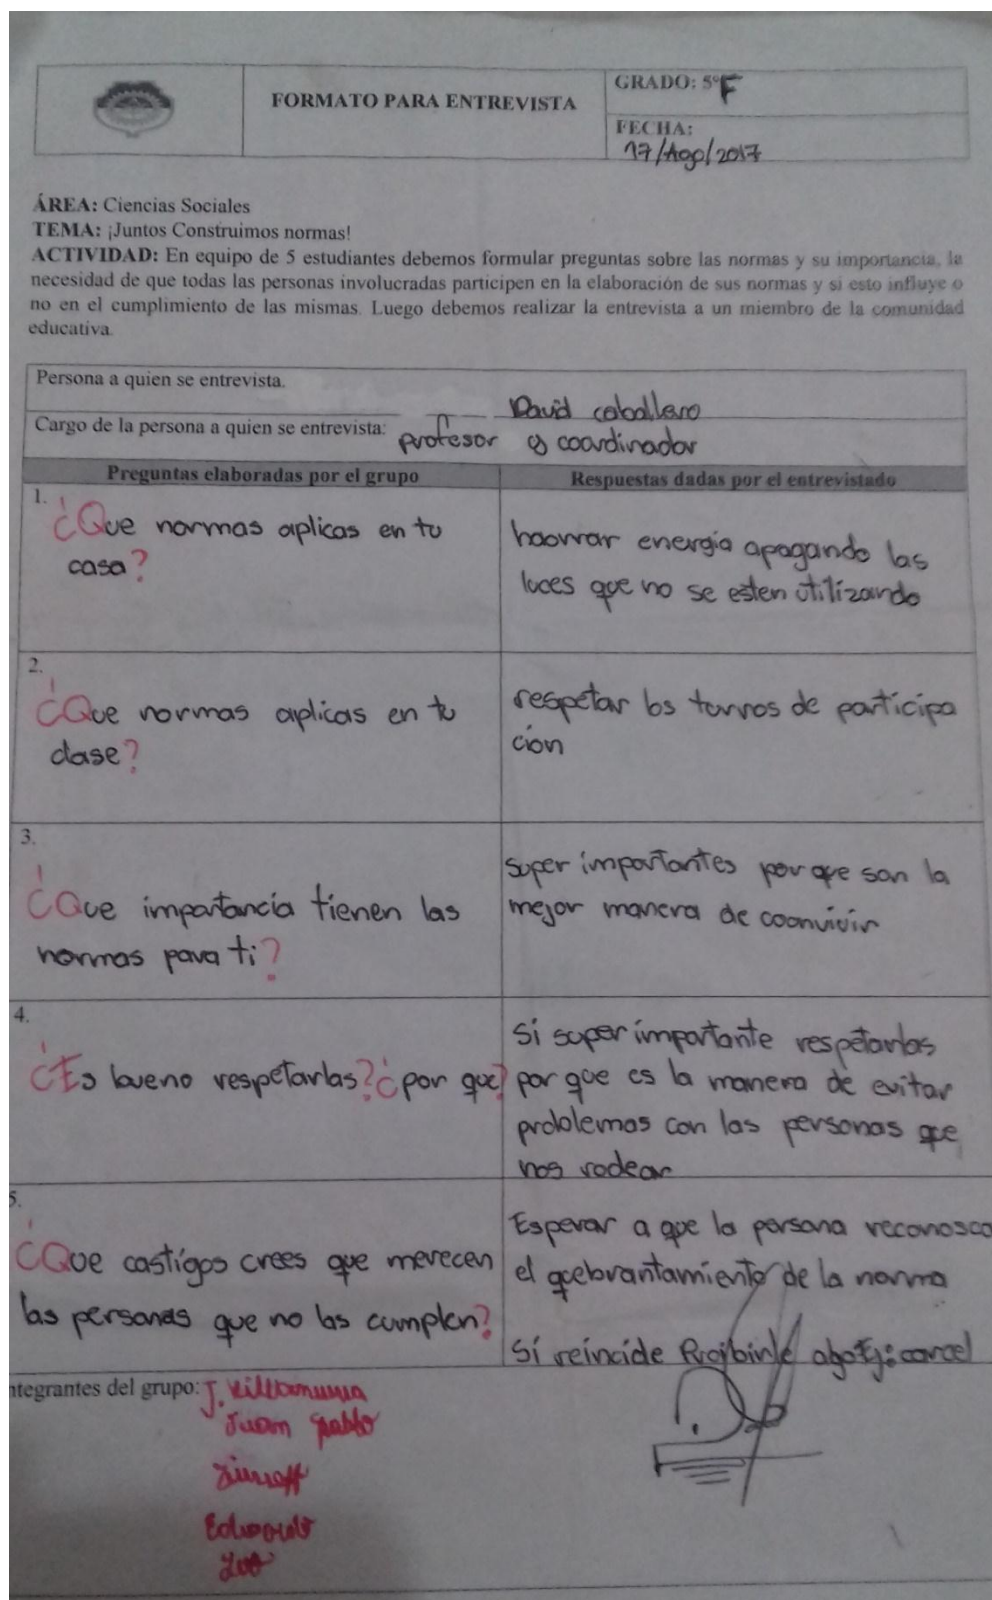 FORMATO PARA ENTREVISTA
GRADO: 5° F
FECHA:
17/Ago/2017
ÁREA: Ciencias Sociales
TEMA: ¡Juntos Construimos normas!
ACTIVIDAD: En equipo de 5 estudiantes debemos formular preguntas sobre las normas y su importancia, la
necesidad de que todas las personas involucradas participen en la elaboración de sus normas y si esto influye o
no en el cumplimiento de las mismas. Luego debemos realizar la entrevista a un miembro de la comunidad
educativa.
Persona a quien se entrevista.
David caballero
Cargo de la persona a quien se entrevista: profesor y coordinador
Preguntas elaboradas por el grupo
Respuestas dadas por el entrevistado
1.
¿Que normas aplicas en tu
casa?
haorrar energia apagando las
luces que no se esten utilizando
2.
¿Que normas aplicas en tu
clase?
respetar los turnos de participa
cion
3.
¿Que importancia tienen las
normas para ti?
super importantes por que son la
mejor manera de coonvivir
4.
¿Es bueno respetarlas? ¿por que?
Si super importante respetarlas
por que es la manera de evitar
problemas con las personas que
nos rodean
5.
¿Que castigos crees que merecen
las personas que no las cumplen?
Esperar a que la persona reconosca
el quebrantamiento de la norma
Si reincide Proibirle carcel
ntegrantes del grupo: J.
Juan pablo